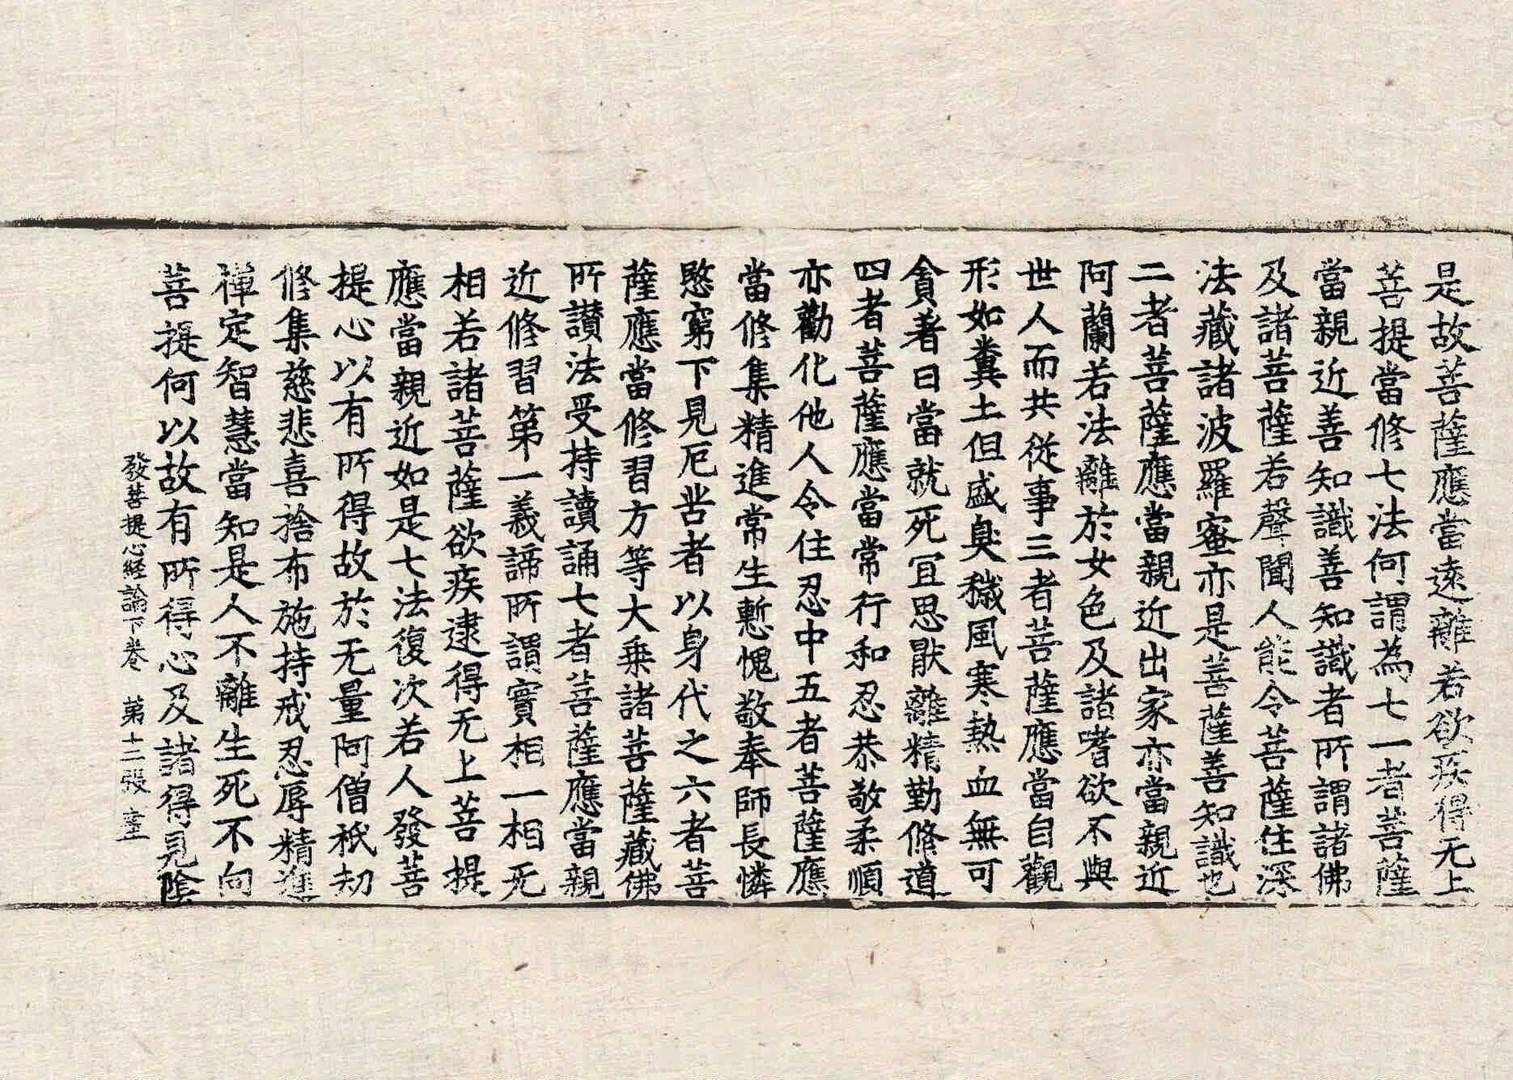 是故菩薩應當遠離若欲疾得无上
菩提當修七法何謂為七一者菩薩
當親近善知識善知識者所謂諸佛
及諸菩薩若聲聞人能令菩薩住深
法藏諸波羅蜜亦是菩薩善知識也
二者菩薩應當親近出家亦當親近
阿蘭若法離於女色及諸嗜欲不與
世人而共從事三者菩薩應當自觀
形如糞土但盛臭穢風寒熱血無可
貪著日當就死冝思猒離精勤修道
四者菩薩應當常行和忍恭敬柔順
亦勸化他人令住忍中五者菩薩應
當修集精進常生慙愧敬奉師長憐
愍窮下見厄苦者以身代之六者菩
薩應當修習方等大乗諸菩薩藏佛
所讃法受持讀誦七者菩薩應當親
近修習第一義諦所謂實相一相无
相若諸菩薩欲疾逮得无上菩提
應當親近如是七法復次若人發菩
提心以有所得故於无量阿僧祇劫
修集慈悲喜捨布施持戒忍辱精進
禪定智慧當知是人不離生死不向
菩提何以故有所得心及諸得見陰
發菩提心經論下卷 第十二張